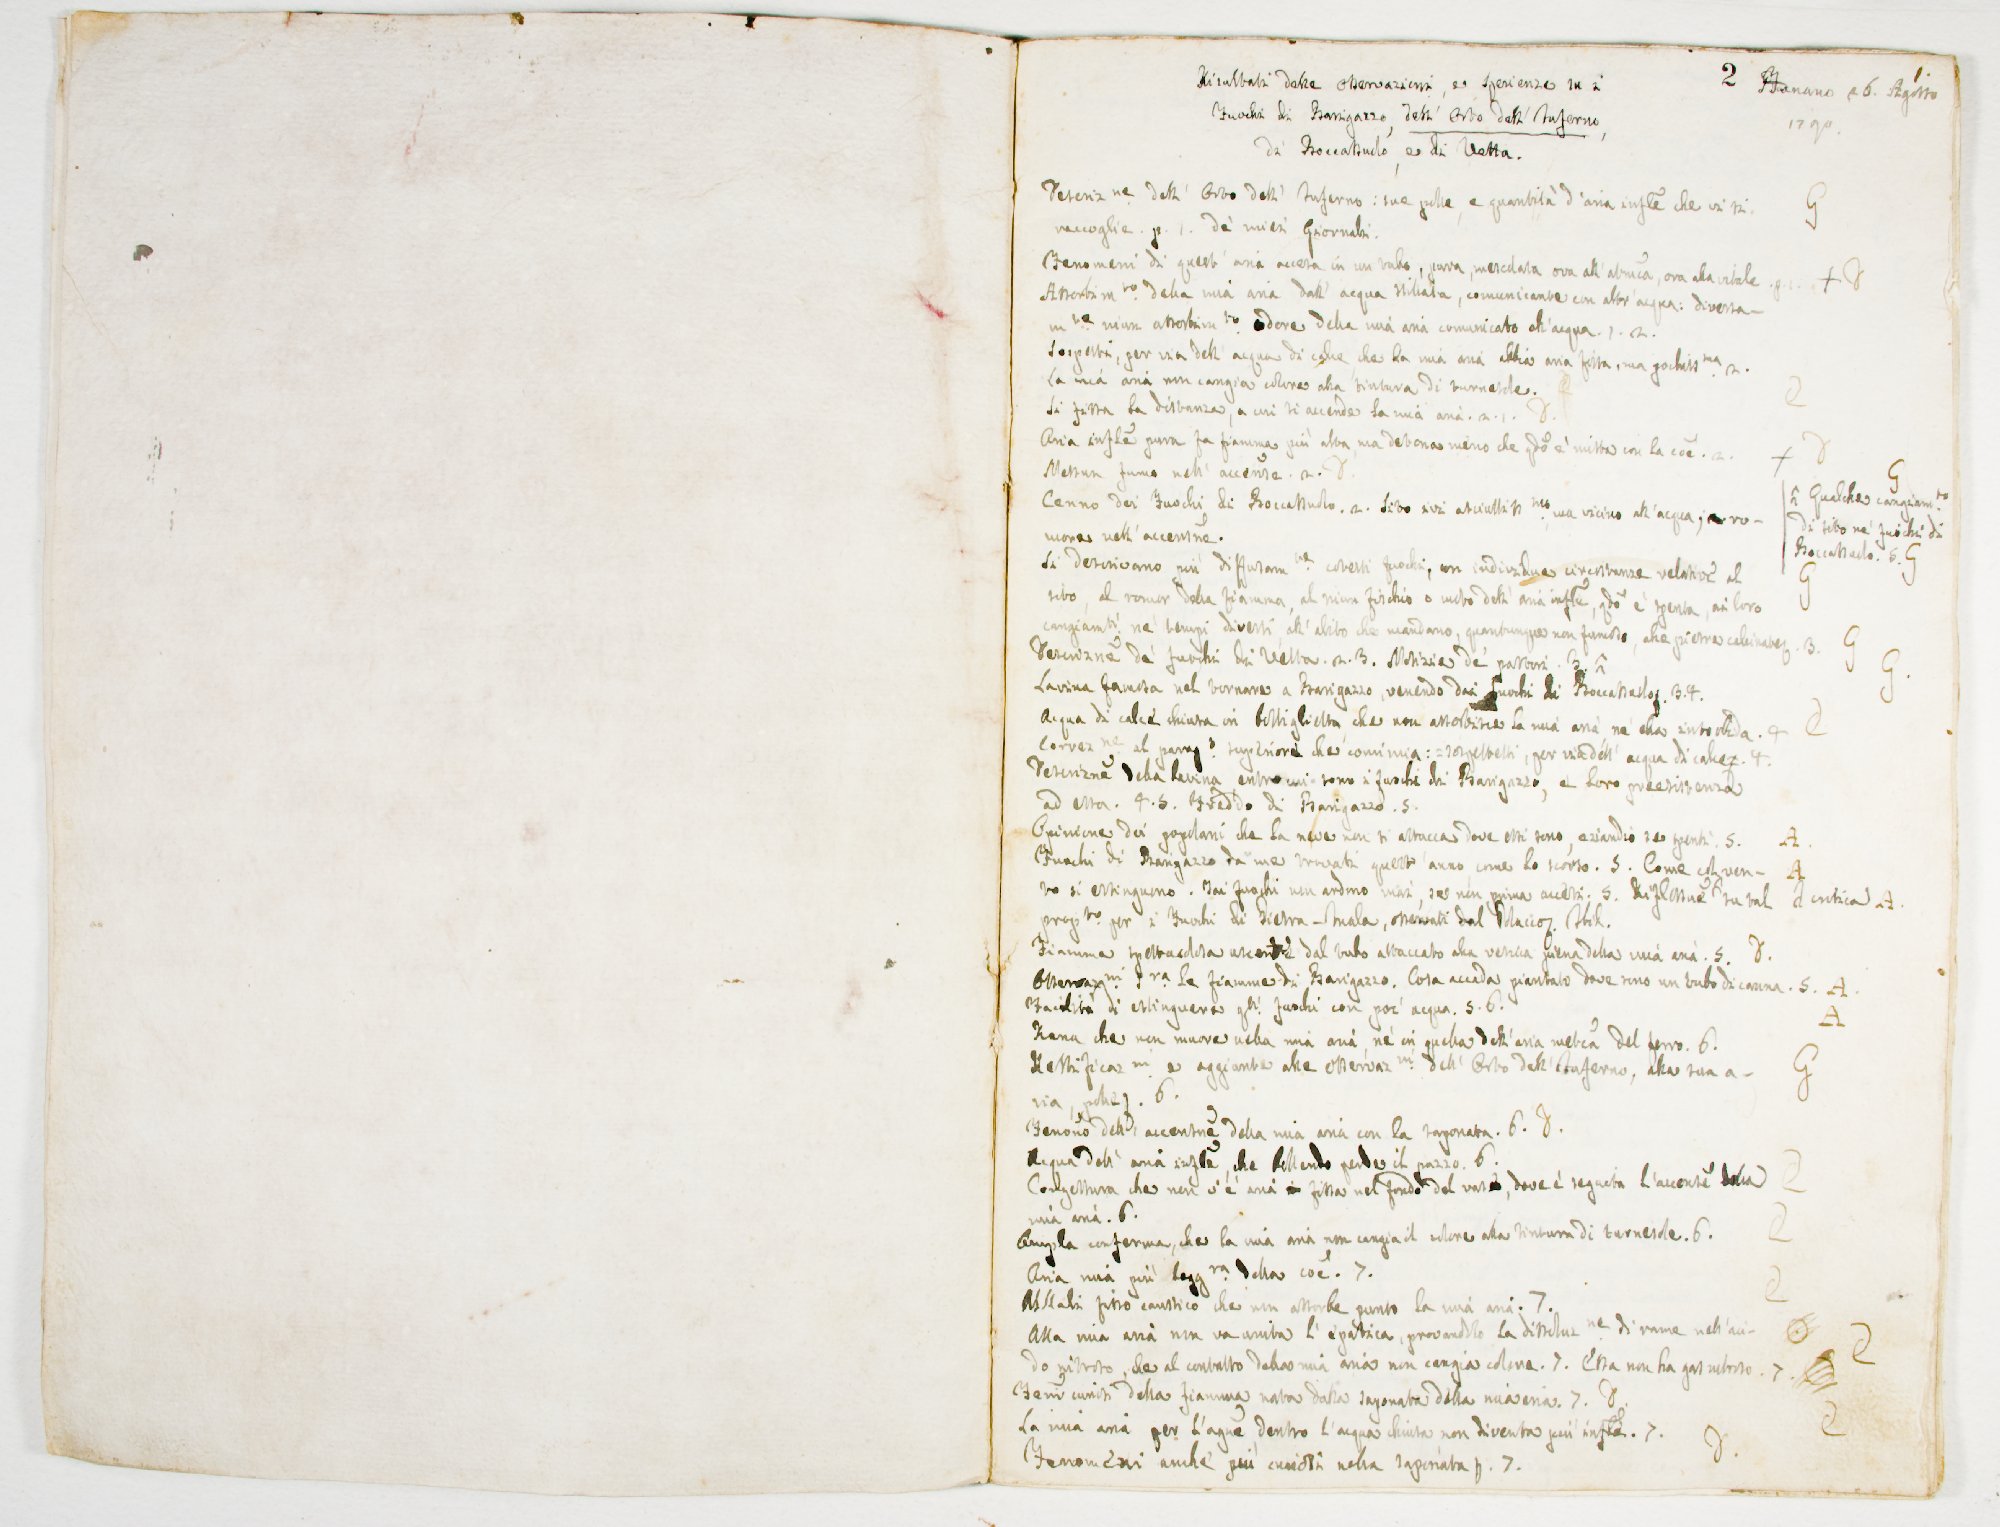 Risultati delle osservazioni, e sperienze su i
Fuochi di Barigazzo, dell' Orto dell' Inferno,
di Boccassuolo, e di Vetta.
2
Fanano 26. Agosto
1790.
Descriz.ne dell' Orto dell' Inferno: sue polle, e quantità d'aria infle che vi si
raccoglie. p. 1. de' miei Giornali. G
Fenomeni di quest' aria accesa in un tubo, pura, mescolata ora all' atmca, ora alla vitale. p. 1. + D
Assorbim.to della mia aria dall' acqua stillata, comunicante con altr' acqua: diversa-
m.te niun assorbim.to odore della mia aria comunicato all' acqua. 1. 2.
Sospetti, per via dell' acqua di calce, che la mia aria abbia aria fissa, ma pochiss.ma 2.
La mia aria non cangia colore alla tintura di turnesole. C
Si fissa la distanza, a cui si accende la mia aria. 2. 1. D.
Aria infle pura fa fiamma più alta, ma detona meno che qdo è mista con la coe. 2. + D
Nessun fumo nell' accense. 2. D
Cenno dei Fuochi di Boccassuolo. 2. Sito ivi asciuttiss.mo, ma vicino all' acqua, ro-
more nell' accensne.
G
Qualche cangiam.to
di sito ne' fuochi di
Boccassuolo. 5. G
Si descrivono più diffusam.te cotesti fuochi, con individuare circostanze relative al
sito, al romor della fiamma, al niun fischio o moto dell' aria infle, qdo è spenta, ai loro
cangiamti ne' tempi diversi, all' alito che mandano, quantunque non fumoso, alle pietre calcinate. 3. G
Descrizne de' fuochi di Vetta. 2. 3. Notizie de' pastori. 3.
Lavina famosa nel tornare a Barigazzo, venendo dai fuochi di Boccassuolo. 3. 4. G.
Acqua di calce chiusa in bottiglietta che non assorbisce la mia aria nè essa intorbida. 4 C
Correz.ne al parag.o superiore che comincia: = sospetti, per via dell' acqua di calce. 4.
Descrizne della lavina entro cui sono i fuochi di Barigazzo, e loro preesistenza
ad essa. 4. 5. Freddo di Barigazzo. 5.
Opinione dei popolani che la neve non si attacca dove essi sono, eziandio se spenti. 5. A.
Fuochi di Barigazzo da me trovati quest' anno come lo scorso. 5. Come col ven- A
to si estinguono. Tai fuochi non ardono mai, se non prima accesi. 5. Riflessne su tal critica A.
prop.to per i Fuochi di Pietra-Mala, osservati dal Volta. Ibid.
Fiamma spettacolosa uscente dal tubo attaccato alla vescica piena della mia aria. 5. D.
Osservaz.ni s.ra le fiamme di Barigazzo. Cosa accada piantato dove sono un tubo di canna. 5. A.
Facilità di estinguere qti fuochi con poc' acqua. 5. 6. A
Rana che non muore nella mia aria, nè in quella dell' aria metca del ferro. 6.
Rettificaz.ni e aggiunte alle osservaz.ni dell' Orto dell' Inferno, alla sua a- G
ria, polle. 6.
Fenomo dell' accensne della mia aria con la saponata. 6. D.
Acqua dell' aria infle, che bollendo perde il puzzo. 6.
Congettura che non v'è aria fissa nel fondo del vaso, dove è seguita l'accense della C
mia aria. 6.
Ampla conferma, che la mia aria non cangia il colore alla tintura di turnesole. 6. C
Aria mia più legg.ra della coe. 7.
Alkali fisso caustico che non assorbe punto la mia aria. 7. C
Alla mia aria non va unita l' epatica, provandolo la dissoluz.ne di rame nell' aci-
do nitroso, che al contatto della mia aria non cangia colore. 7. Essa non ha gas nitroso. 7. C
Fenni curiosi della fiamma nata dalla saponata della mia aria. 7. D.
La mia aria per l' dentro l' acqua chiusa non diventa più infle. 7. C
Fenomeni anche più curiosi nella saponata. 7. D.